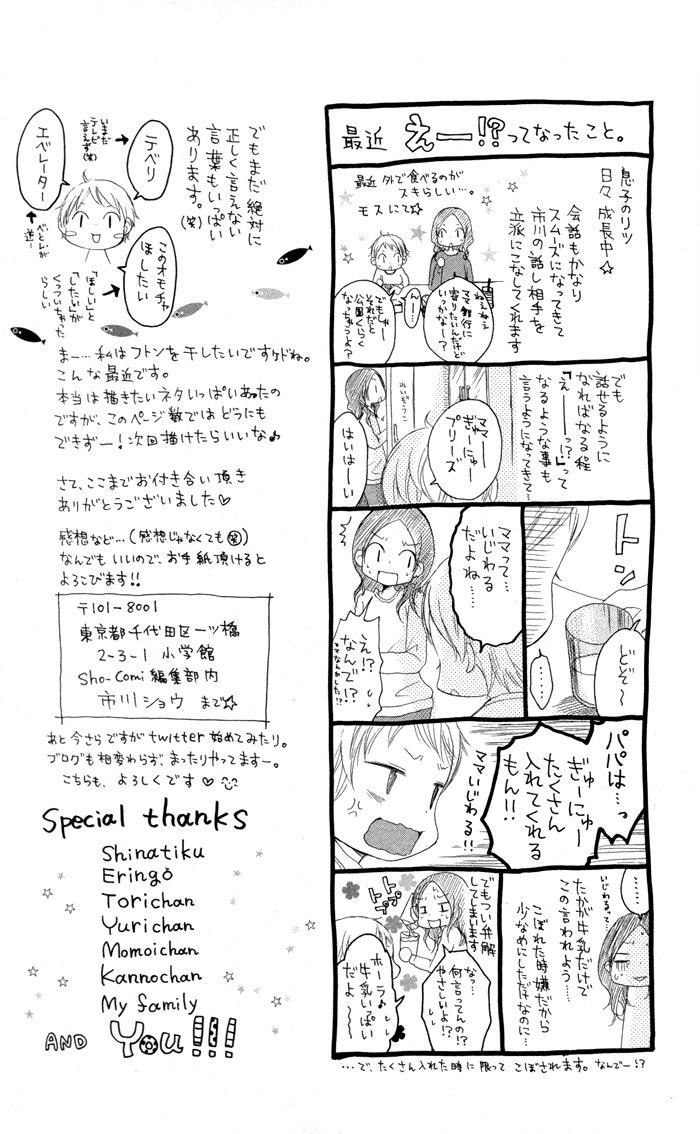 最近 えー!?ってなったこと。
息子のリツ
日々 成長中☆
会話もかなり
スムーズになってきて
市川の話し相手を
立派にこなしてくれます
最近 外で食べるのが
スキらしい…。
モスにて☆
ねぇねぇ
ママ銀行に
寄りたいんだけど
いっかなー?
んー…
でもじゃー
それだと
公園くらく
なっちゃうよ?
でも
話せるように
なればなる程
「えーーっ!?」って
なるような事も
言うようになってきて…
れいぞうこ
ママー
ぎゅーにゅー
プリーズ
はいはーい
トン
どぞ〜
……
ママって…
いじわる
だよね……
え!?
なんで!?
ママなんかした!?
パパは…っ
ぎゅーにゅー
たくさん
入れてくれる
もん!!
ママいじわる!!
……
いじわるって…
たかが牛乳だけで
この言われよう…
こぼれた時嫌だから
少なめにしただけなのに…
でもつい弁解
してしまいます
トプトプ
なっ…
何言ってんの!?
やさしいよ!?
ホーラ♪
牛乳いっぱい
だよ〜
…で、たくさん入れた時に限って こぼされます。なんでー!?
でもまだ絶対に
正しく言えない
言葉もいっぱい
あります。(笑)
テベリ
いまだ
テレビ
言えず(笑)
エベレーター
べとれが
逆…
このオモチャ
ほしたい
「ほしい」と
「したい」が
くっついちゃった
らしい
まー…私はフトンを干したいですけどね。
こんな最近です。
本当は描きたいネタいっぱいあったの
ですが、このページ数ではどうにも
できずー!次回描けたらいいな♪
さて、ここまでお付き合い頂き
ありがとうございました♡
感想など…(感想じゃなくても㊗)
なんでもいいので、お手紙頂けると
よろこびます!!
〒101-8001
東京都千代田区一ツ橋
2-3-1 小学館
Sho-Comi編集部内
市川ショウ まで☆
あと今さらですがtwitter始めてみたり。
ブログも相変わらず、まったりやってますー。
こちらも、よろしくです♡
Special thanks
Shinatiku
Eringo
Torichan
Yurichan
Momoichan
Kannochan
My family
AND You!!!